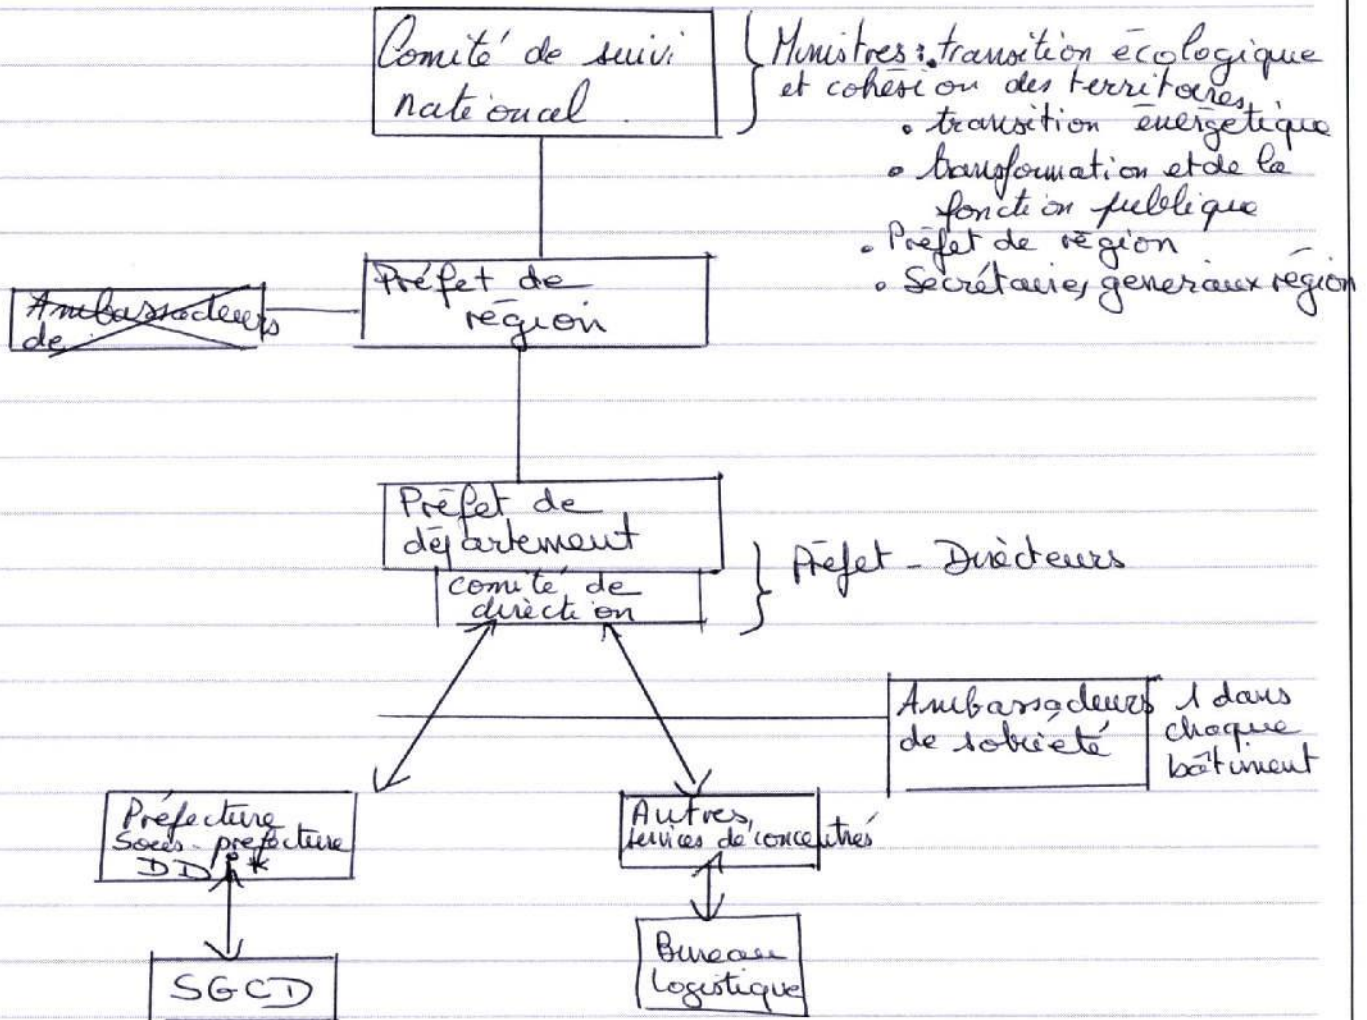 Comité de suivi
national.
Ministres : . transition écologique
et cohésion des territoires,
• transition énergétique
• transformation et de la
fonction publique
• Préfet de région
• Secrétaires généraux région
Ambassadeurs
de
Préfet de
région
Préfet de
département
comité de
direction
Préfet - Directeurs
Ambassadeurs
de sobriété
1 dans
chaque
bâtiment
Préfecture
Sous-préfecture
DDI *
Autres,
services déconcentrés
SGCD
Bureau
logistique